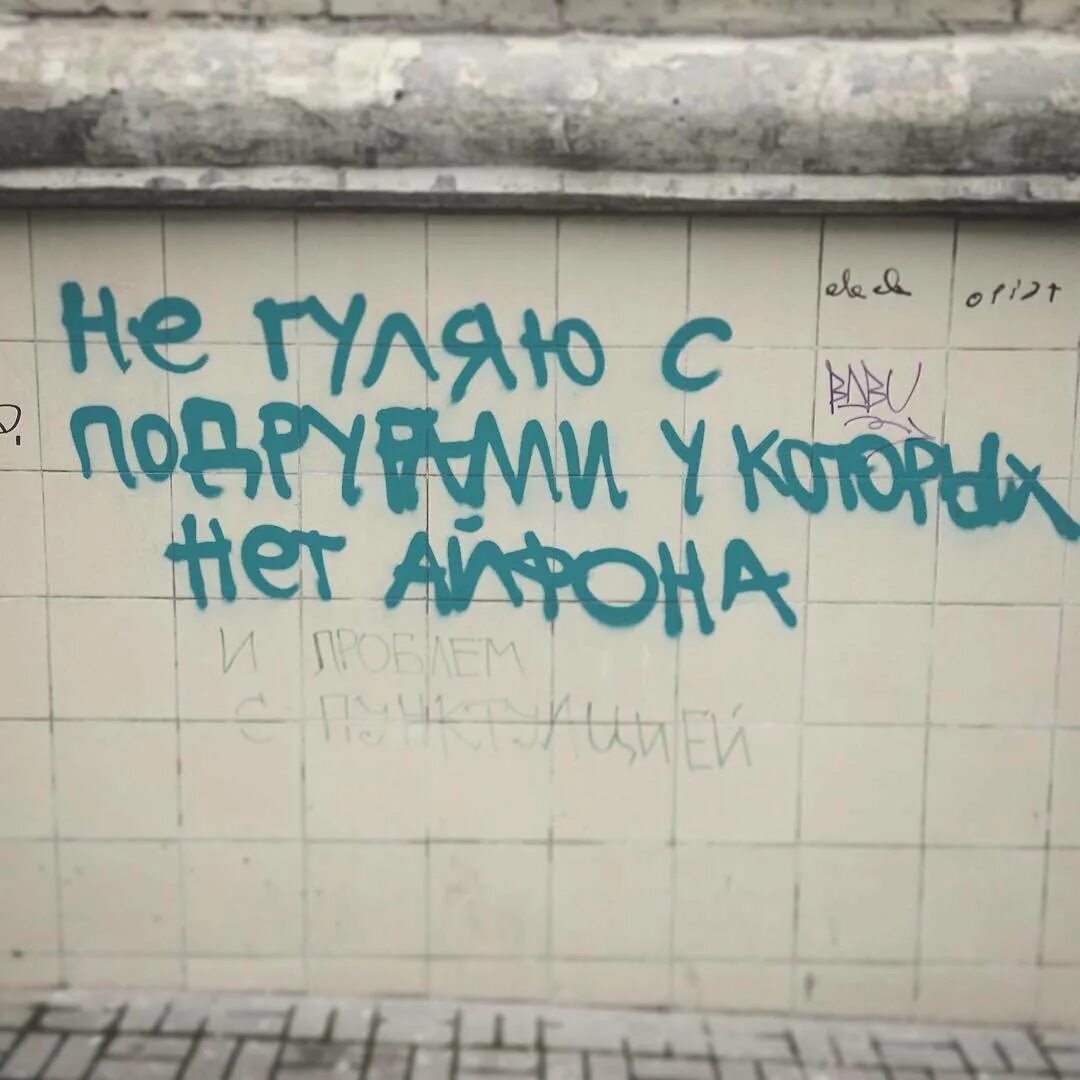 Не гуляю с
подругами у которых
нет айфона
И ПРОБЛЕМ
С ПУНКТУАЦИЕЙ